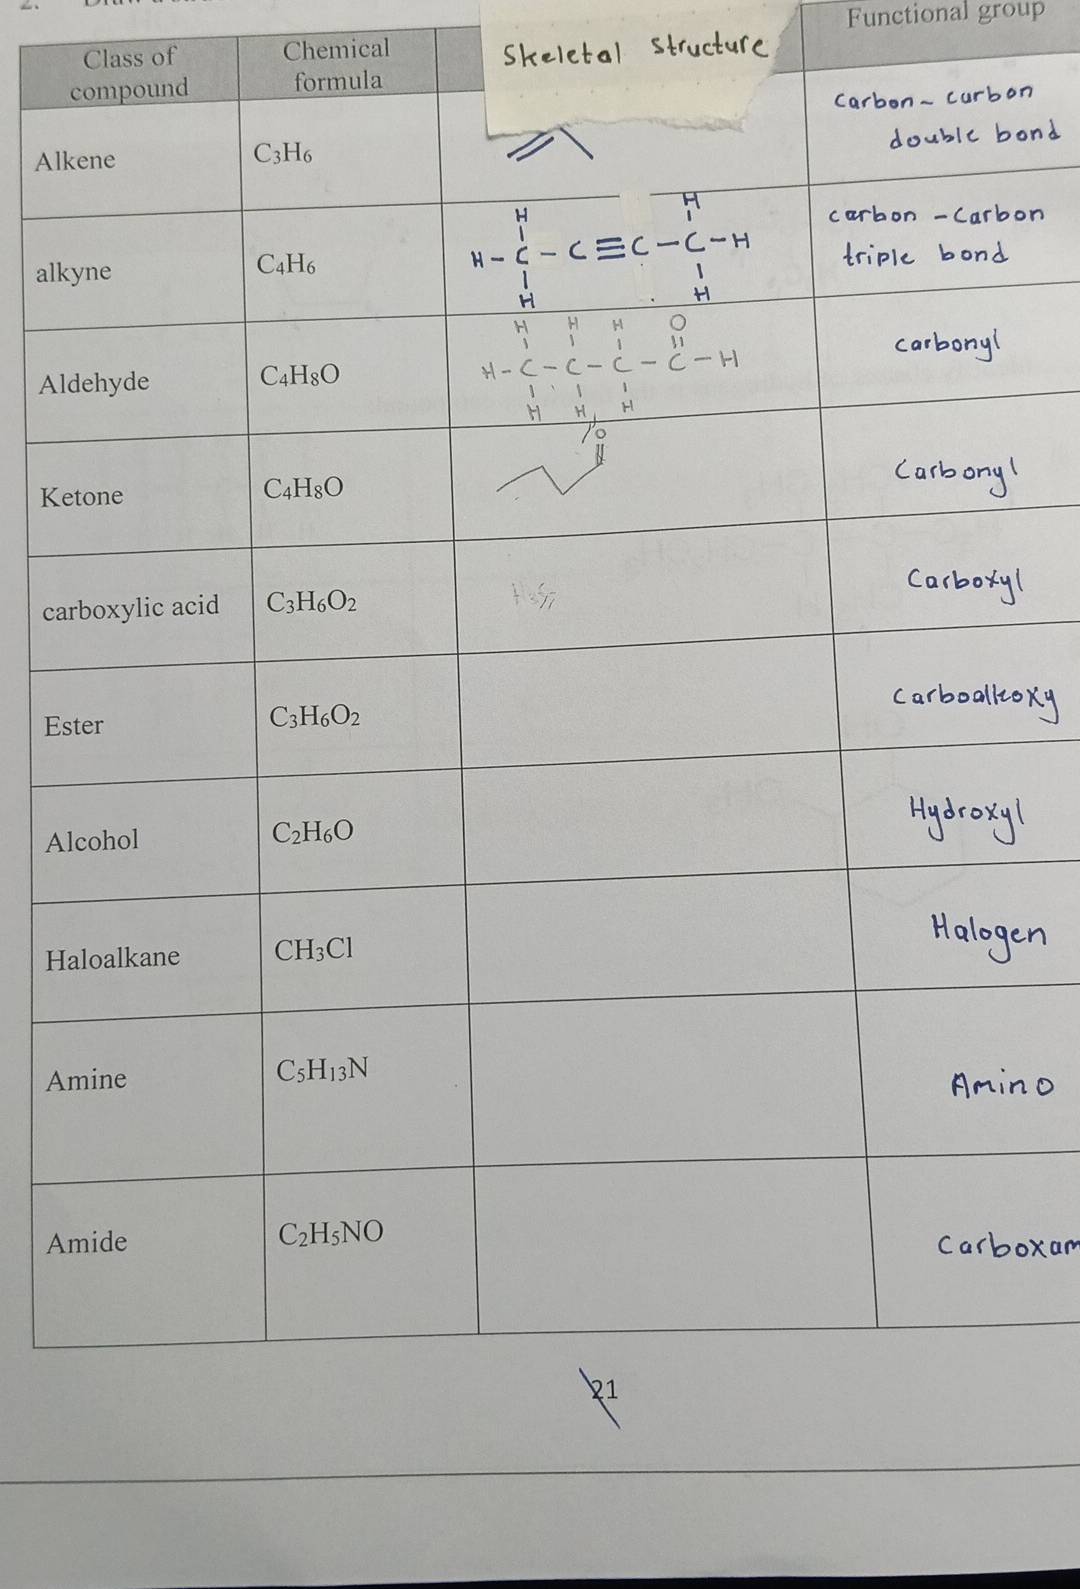 Functional group
Skeletal Structure
Class of
compound
Chemical
formula
Alkene
C₃H₆
Carbon - carbon
double bond
alkyne
C₄H₆
H H
H - C - C ≡ C - C - H
H H
carbon - Carbon
triple bond
Aldehyde
C₄H₈O
H H H O
H - C - C - C - C - H
H H H
carbonyl
Ketone
C₄H₈O
O
Carbonyl
carboxylic acid
C₃H₆O₂
Carboxyl
Ester
C₃H₆O₂
Carboalkoxy
Alcohol
C₂H₆O
Hydroxyl
Haloalkane
CH₃Cl
Halogen
Amine
C₅H₁₃N
Amino
Amide
C₂H₅NO
Carboxam
21